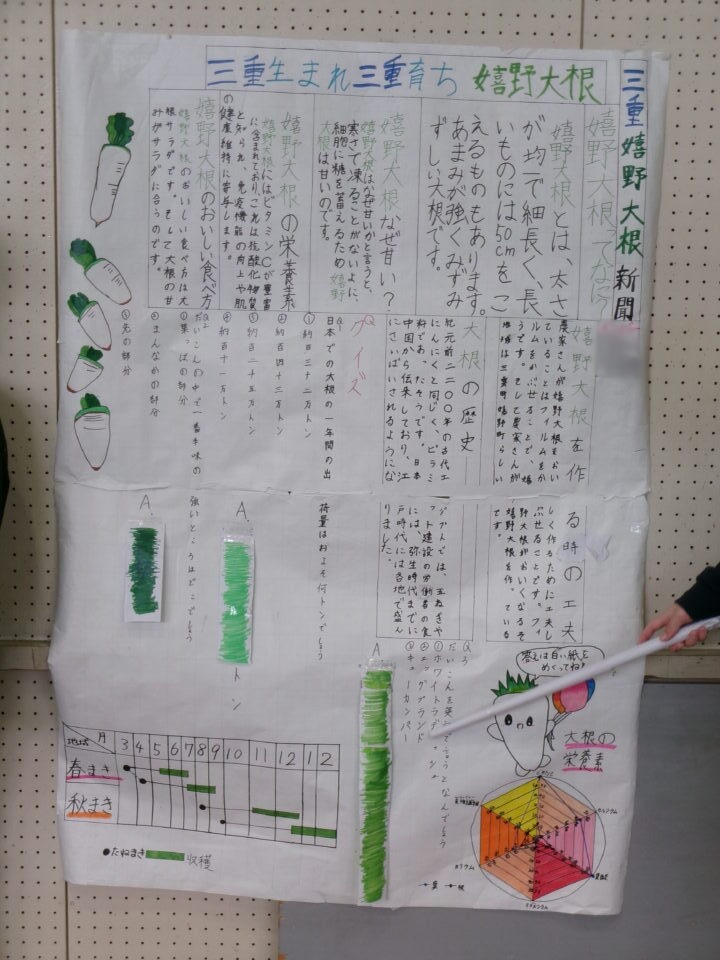 三重嬉野大根新聞
三重生まれ三重育ち 嬉野大根
嬉野大根ってなに？
嬉野大根とは、太さ
が均一で細長く、長
いものには50cmをこ
えるものもあります。
あまみが強くみずみ
ずしい大根です。
嬉野大根なぜ甘い？
嬉野大根はなぜ甘いかと言うと、
寒さで凍ることがないように、
細胞に糖を蓄えるため 嬉野
大根は甘いのです。
嬉野大根の栄養素
嬉野大根にはビタミンCが豊富
に含まれており、これは抗酸化物質
と知られ、免疫機能の向上や肌
の健康維持に寄与します。
嬉野大根のおいしい食べ方
嬉野大根のおいしい食べ方は大
根サラダです。そして大根の甘
みがサラダに合うのです。
嬉野大根を作る時の工夫
農家さんが嬉野大根をおいしく作るために工夫し
ていることはフィルムをかぶせることです。フィ
ルムをかぶせることで、嬉野大根がおいしくなるそ
うです。そして農家さんが嬉野大根を作っている
地域は三重県嬉野町らしいです。
大根の歴史
紀元前二二〇〇年の古代エジプトでは、玉ねぎや
にんにくと同じく、ピラミッド建設の労働者の食
料であったそうです。日本には、弥生時代までに
中国から伝来しており、江戸時代には各地で盛ん
にさいばいされるようになりました。
クイズ
Q1
日本での大根の一年間の出荷量はおよそ何トンでしょう
①約百三十二万トン
②約百四十三万トン
③約百二十五万トン
④約百十一万トン
A.
トン
Q2
だいこんの中で一番辛味の強いところはどこでしょう
①葉っぱの部分
②まんなかの部分
③先の部分
A.
Q3
だいこんを英語で言うとなんでしょう
①ホワイトラディッシュ
②エッグプラント
③キューカンバー
A
答えは白い紙を
めくってね!
大根の
栄養素
カルシウム
カリウム
葉 根
地域 月 3 4 5 6 7 8 9 10 11 12 1 2
春まき
秋まき
●たねまき 収穫